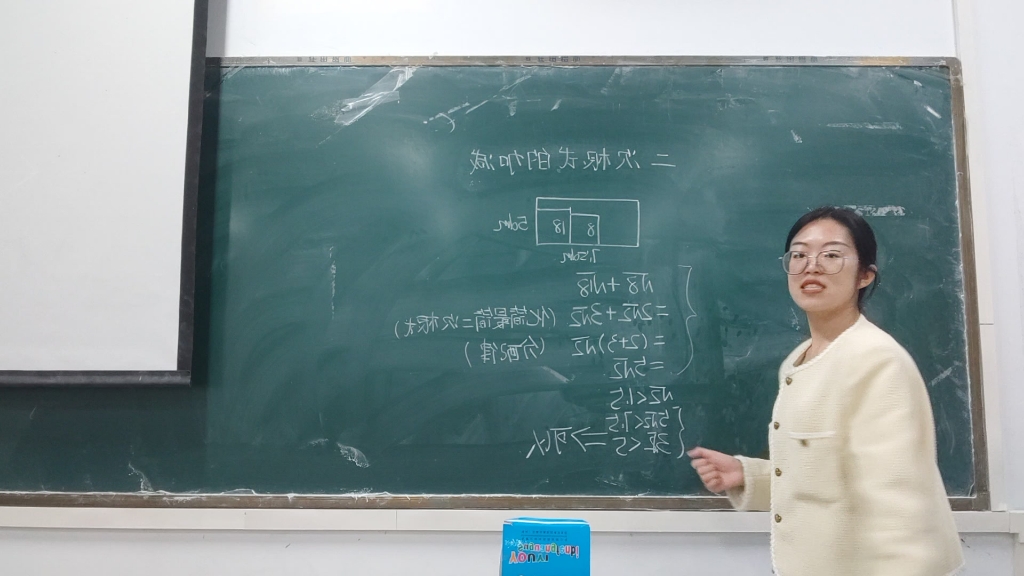 二次根式的加减
5dm
18
8
7.5dm
√8+√18
=2√2+3√2 (化简最简二次根式)
=(2+3)√2 (分配律)
=5√2
√2<1.5
5√2<7.5
3√2<5 ⇒ 可以